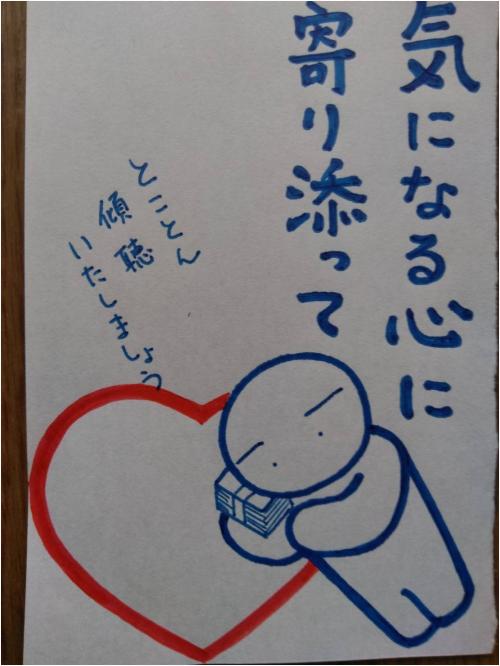 気になる心に
寄り添って
とことん
傾聴
いたしましょう